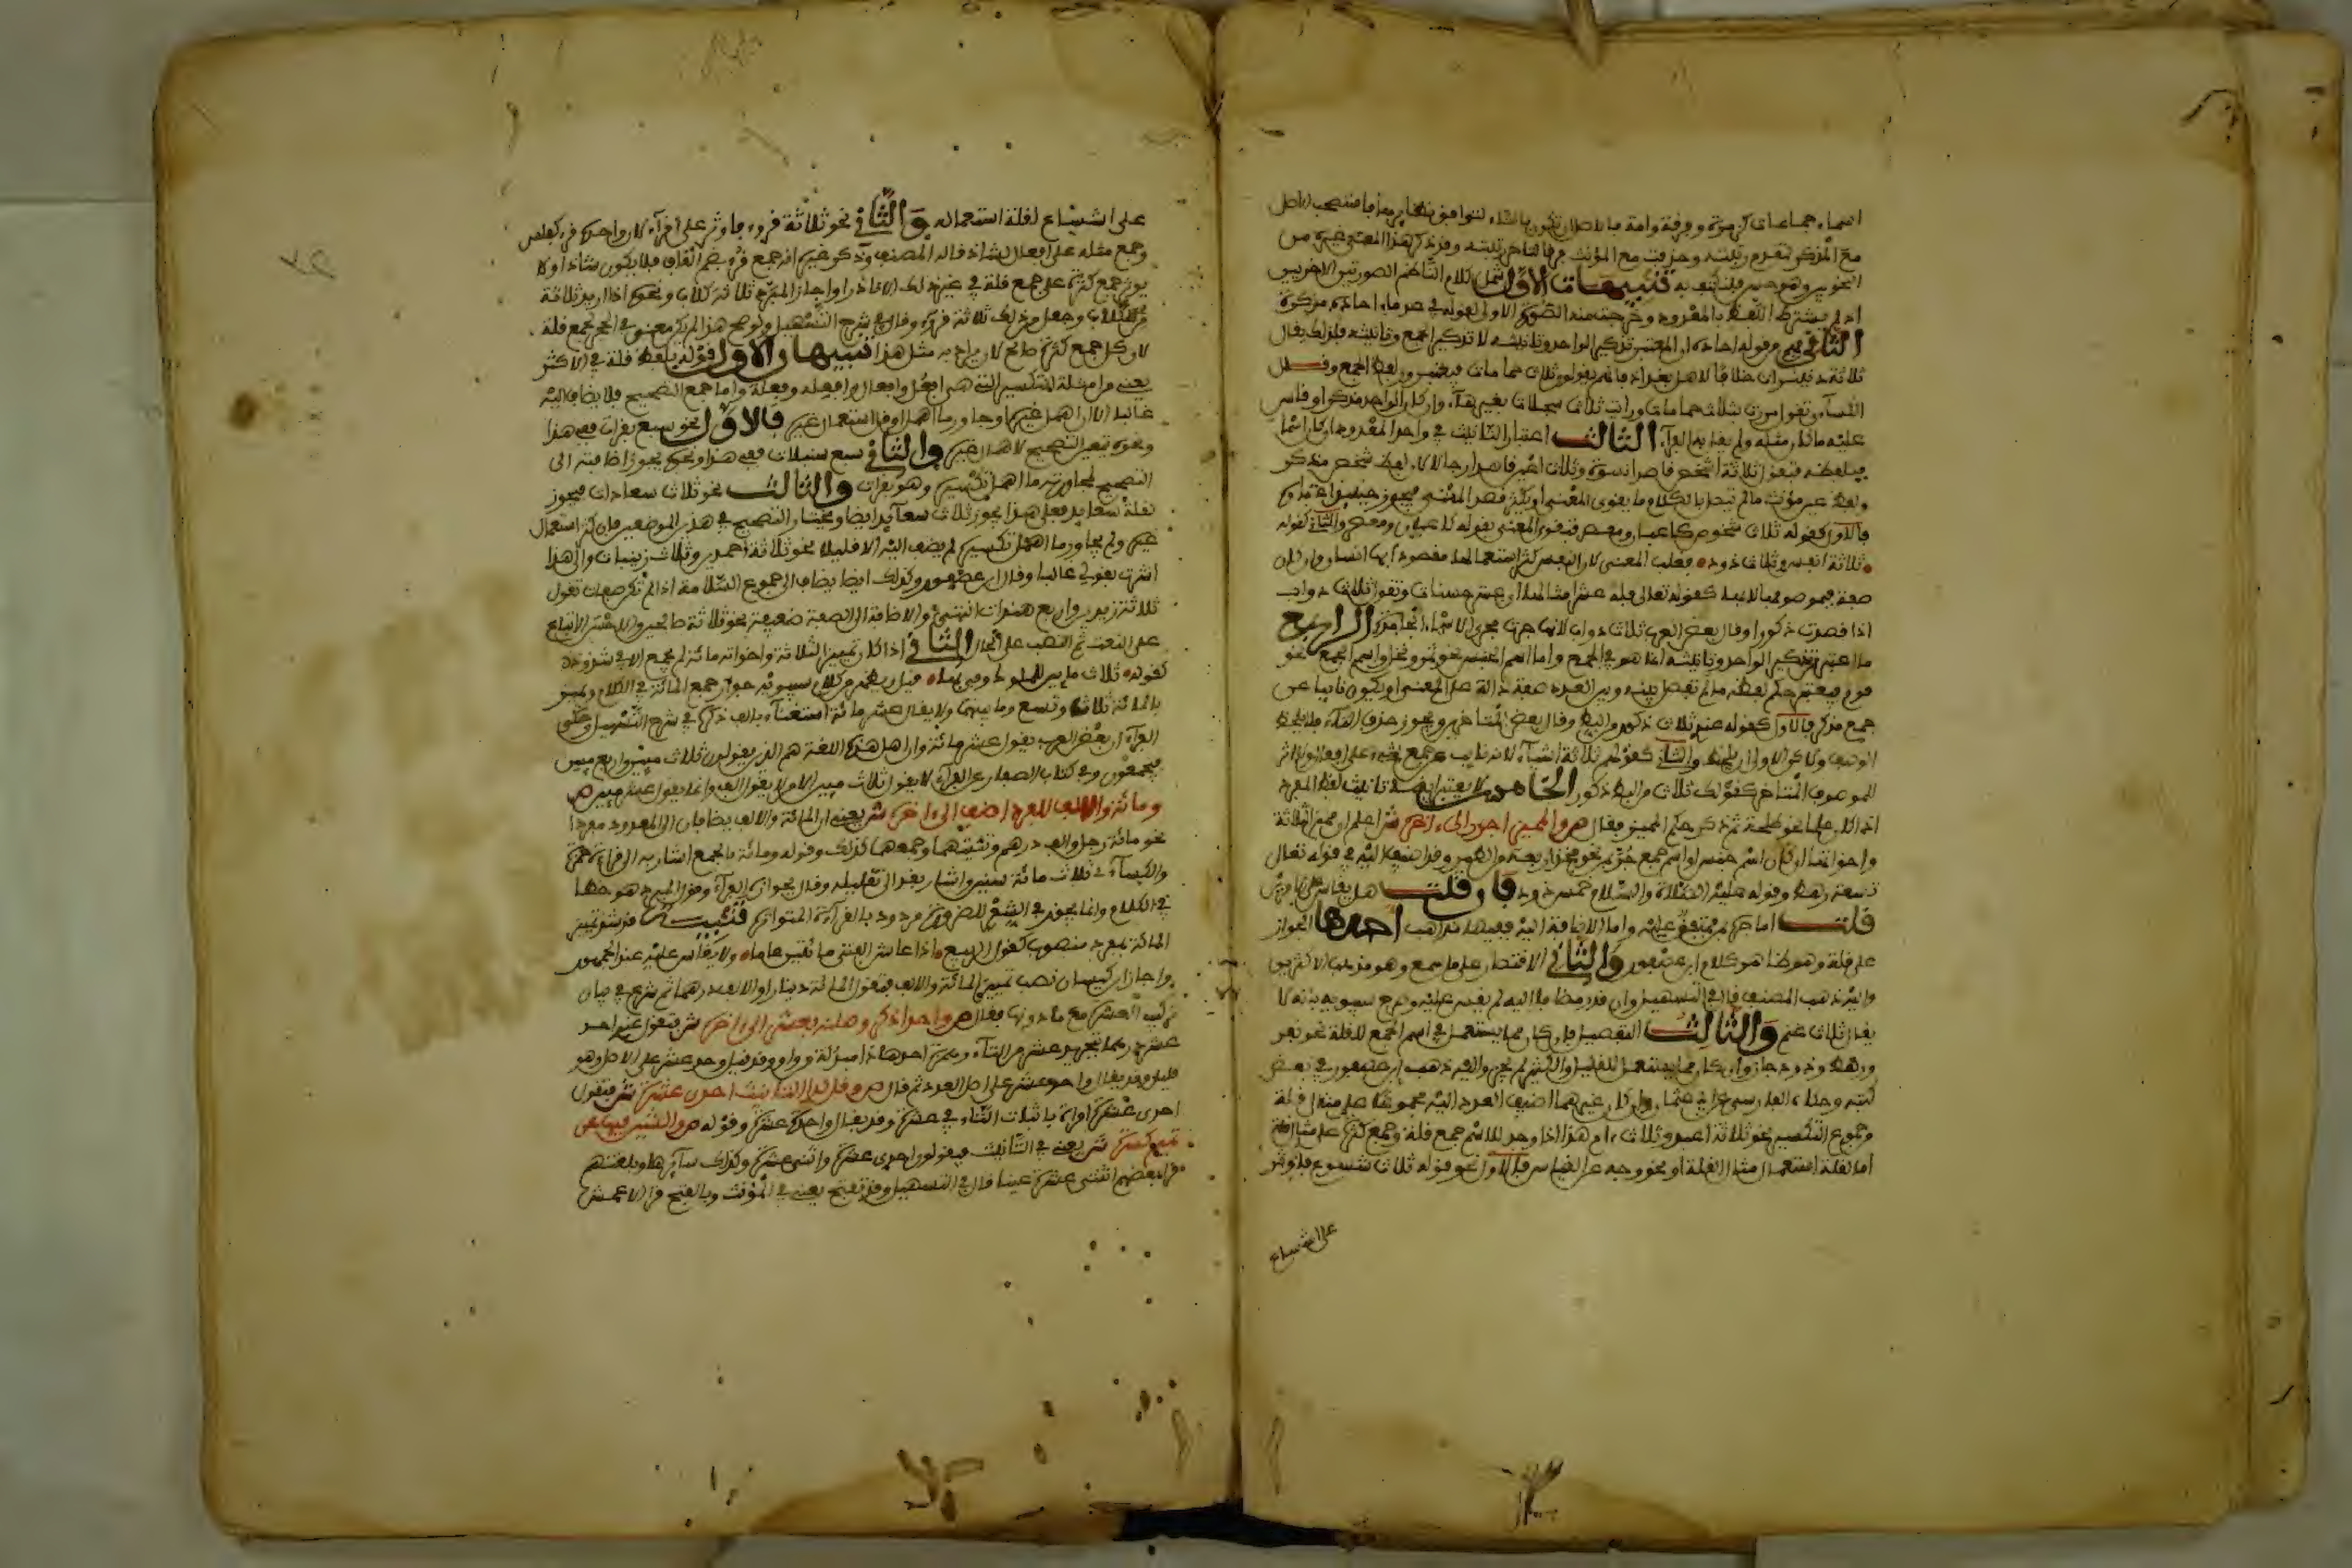 اسماء جماعات كزمرة وفرقة وامة فالاصل ان تكون بالتاء لتوافق نظايرها فاستصحب الاصل
مع المذكر لتقدم رتبته وحذفت مع المؤنث فرقا لتاخر رتبته وقد ذكر هذا المعنى غيره من
النحويين وهو حسن فليكتف به تنبيهات الاول شمل كلام الناظم الصورتين الاخريين
اذ لم يشترط اللفظ بالمعدود وخرجت منه الصورة الاولى لقوله في عد ما احاده مذكرة
الثاني فهم من قوله احاده ان المعتبر تذكير الواحد وتانيثه لا تذكير الجمع وتانيثه فلذلك يقال
ثلاثة حمامات خلافا لاهل بغداد فانهم يقولون ثلاث حمامات فيعتبرون لفظ الجمع وقال
الكساءي تقول مررت بثلاث حمامات ورايت ثلاث سجلات بغير هاء وان كان الواحد مذكرا وقاس
عليه ما كان مثله ولم يقل به الفراء الثالث اعتبار التانيث في واحد المعدود ان كان اسما
فبلفظه فتقول ثلاثة اشخص قاصدا نسوة وثلاث اعين قاصدا رجالا لان لفظ شخص مذكر
ولفظ عين مؤنث ما لم يتصل بالكلام ما يقوى المعنى او يكثر قصد المعنى فيجوز حينئذ اعتباره
فالاول كقوله ثلاث شخوص كاعبان ومعصر فتقوى المعنى بقوله كاعبان ومعصر والثاني كقوله
ثلاثة انفس وثلاث ذود فغلب المعنى لان النفس كثر استعمالها مقصودا بها انسان وان كان
صفة فبموصوفها لا بها كقوله تعالى فله عشر امثالها اي عشر حسنات وتقول ثلاث دواب
اذا قصدت ذكورا وقال بعض العرب ثلاث دواب لانها جرت مجرى الاسماء الجامدة الرابع
ما اعتبر تذكير الواحد وتانيثه انما هو في الجمع واما اسم الجنس نحو بقر ونخل واسم الجمع نحو
قوم فيعتبر حكم لفظه ما لم تفصل بينه وبين العدد صفة دالة على المعنى او يكون نايبا عن
جمع مذكر فالاول كقوله عندي ثلاث ذكور من البط وقال بعض المتاخرين ويجوز حذف التاء
الوصف والثاني كقولهم ثلاثة اشياء لانه نايب عن جمع شيء على افعال ولا اثر
للموصوف المتاخر كقولك ثلاث من البط ذكور الخامس لا يعتبر ايضا تانيث لفظ المفرد
اذا كان علما نحو طلحة ثم ذكر حكم المميز فقال ص والمميز اجرر الى اخره ش اعلم ان مميز الثلاثة
واخواتها ان كان اسم جنس او اسم جمع جر بمن نحو فخذ اربعة من الطير وقد اضيف اليه في قوله تعالى
تسعة رهط وقوله عليه الصلاة والسلام خمس ذود فان قلت هل يقاس على ما ورد من
قلت اما جره بمن فمتفق عليه واما الاضافة اليه ففيها مذاهب احدها الجواز
على قلة وهو ظاهر كلام ابن عصفور والثاني الاقتصار على ما سمع وهو مذهب الاكثرين
واليه ذهب المصنف قال في التسهيل وان ندر مضافا اليه لم يقس عليه وصرح سيبويه بانه لا
يقال ثلاث غنم والثالث التفصيل فان كان مما يستعمل في اسم الجمع للقلة نحو نفر
ورهط وذود جاز وان كان مما يستعمل للقليل والكثير لم يجز واليه ذهب ابن عصفور في بعض
كتبه وحكاه الفارسي عن ابي عثمان وان كان غيرهما اضيف العدد اليه مجموعا على مثال قلة
وجموع التكسير نحو ثلاثة اعبد وثلاث اام هذا اذا وجد للاسم جمع قلة وجمع كثرة على مثال
اما لقلة استعمال مثال القلة او بخروجه عن القياس فالاول نحو قوله ثلاث شسوع فاوثر
على اشساع
على اشساع لقلة استعماله والثاني نحو ثلاثة قروء فاوثر على اقراء لان واحده قرء كفلس
وجمع مثله على افعال شاذ قاله المصنف وذكر غيره انه جمع قرء بضم القاف فلا يكون شاذا ولا
يوثر جمع كثرة على جمع قلة في غير ذلك الا نادرا واجاز المبرد ثلاثة كلاب ونحوه اذا اريد ثلاثة
من كلاب وجعل من ذلك ثلاثة قروء وقال في شرح التسهيل ولو صح هذا لم يكن معنى في الحجر بجمع قلة
لان كل جمع كثرة صالح لان يراد به مثل هذا تنبيهان الاول قوله بلفظ قلة في الاكثر
يعني من امثلة التكسير التي هي افعل وافعال وافعلة وفعلة واما جمع التصحيح فلا يضاف اليه
غالبا الا ان اهمل غيره او جاور ما اهمل او قل استعمال غيره فالاول نحو سبع بقرات ففي هذا
ونحوه تعين التصحيح لاهمال غيره والثاني سبع سنبلات ففي هذا ونحوه يجوز اضافته الى
التصحيح لمجاورته ما اهمل تكسيره وهو بقرات والثالث نحو ثلاث سعادات فيجوز
لقلة سعايد فعلى هذا يجوز ثلاث سعايد ايضا ويختار التصحيح في هذين الموضعين فان كثر استعمال
غيره ولم يجاور ما اهمل تكسيره لم يضف اليه الا قليلا نحو ثلاثة احمدين وثلاث زينبات والى هذا
اشرت بقولي غالبا وقال ابن عصفور وكذلك ايضا يضاف الى جموع السلامة اذا لم تكن صفات تقول
ثلاثة زيدين واربع هندات انتهى والاضافة الى الصفة ضعيفة نحو ثلاثة صالحين والاحسن الاتباع
على النعت ثم النصب على الحال الثاني اذا كان تمييز الثلاثة واخواته مائة لم يجمع الا في شذوذ
كقوله ثلاث مئين للملوك وفى بها قيل ويفهم من كلام سيبويه جواز جمع المائة في الكلام ويميز
بالمائة ثلاث وتسع وما بينهما ولا يقال عشر مائة استغناء بالف ذكره في شرح التسهيل وحكى
الفراء ان بعض العرب يقول عشر مائة وان اهل هذه اللغة هم الذين يقولون ثلاث مئين واربع مئين
فيجمعون وفي كتاب الصفار عن الفراء لا يقول ثلاث مئين الا من لا يقول الف وانما يقول عشر مئين ص
ومائة والالف للفرد اضف الى اخره ش يعني ان المائة والالف يضافان الى المعدود مفردا
نحو مائة رجل والف درهم وتثنيتهما وجمعهما كذلك وقوله ومائة بالجمع اشار به الى قراءة حمزة
والكساءي ثلاث مائة سنين واشار بقد الى تقليله وقال بجوازه الفراء ومن المبرد هو خطا
في الكلام وانما يجوز في الشعر للضرورة مردود بالقراءة المتواترة تنبيه قد شذ تمييز
المائة بمفرد منصوب كقول الربيع اذا عاش الفتى مائتين عاما ولا يقاس عليه عند الجمهور
واجاز ابن كيسان نصب تمييز المائة والالف فتقول المائة دينارا والالف درهما ثم شرع في بيان
تركيب العشرة مع ما دونها فقال ص واحدا ذكر وصلنه بعشر الى اخره ش فتقول عندي احد
عشر رجلا بتجريد عشر من التاء وهمزة احد هذا مبدلة من واو وقد قيل وحد عشر على الاصل وهو
قليل وقد يقال واحد عشر على اصل العدد ثم قال ص وقل لدى التانيث احدى عشرة ش فتقول
احدى عشرة امراة باثبات التاء في عشرة وقد يقال واحدة عشرة وقوله ص والشين فيها عن
تميم كسرة ش يعني في التانيث فيقولون احدى عشرة واثنتي عشرة وكذلك سايرها وبلغتهم
قرا بعضهم اثنتى عشرة عينا قال في التسهيل وقد تفتح يعني في المؤنث وبالفتح قرا الاعمش